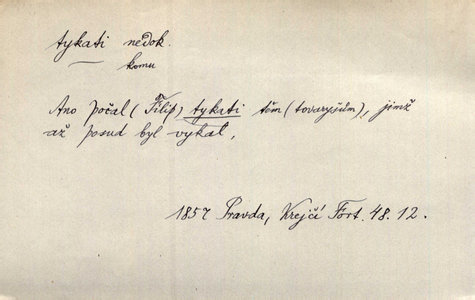 tykati nedok.
komu
Ano počal (Filip) tykati těm (tovaryšům), jimž
až posud byl vykal,
1857 Pravda, Krejčí Fort. 48. 12.